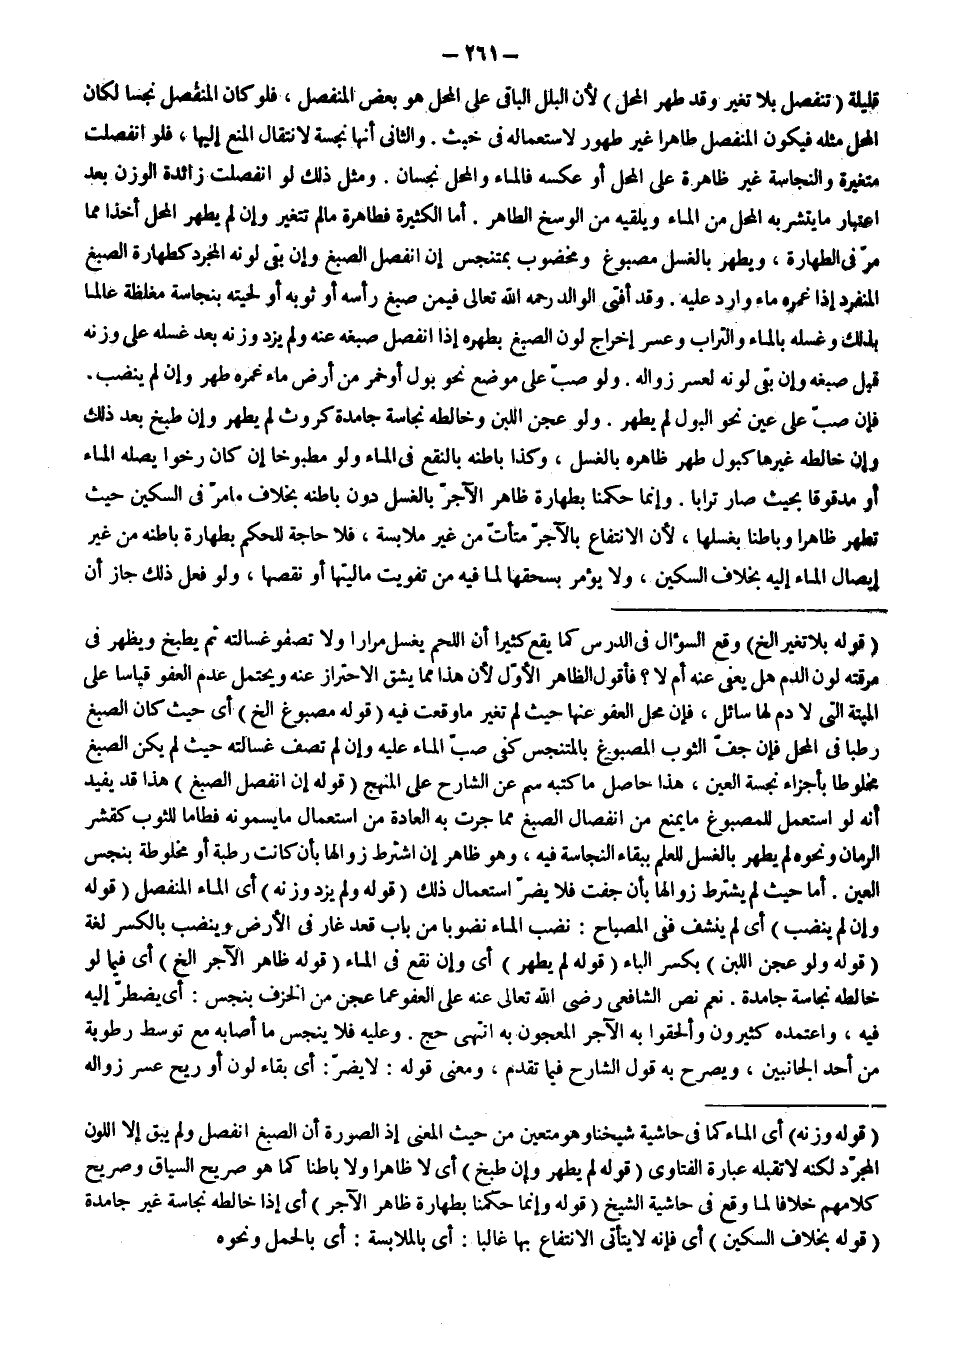 — ٢٦١ —
قليلة ( تنفصل بلا تغير وقد طهر المحل ) لأن البلل الباقى على المحل هو بعض المنفصل ، فلو كان المنفصل نجسا لكان
المحل مثله فيكون المنفصل طاهرا غير طهور لاستعماله فى خبث . والثانى أنها نجسة لانتقال المنع إليها ، فلو انفصلت
متغيرة والنجاسة غير ظاهرة على المحل أو عكسه فالماء والمحل نجسان . ومثل ذلك لو انفصلت زائدة الوزن بعد
اعتبار مايتشربه المحل من الماء ويلقيه من الوسخ الطاهر . أما الكثيرة فطاهرة مالم تتغير وإن لم يطهر المحل أخذا مما
مرّ فى الطهارة ، ويطهر بالغسل مصبوغ ومخضوب بمتنجس إن انفصل الصبغ وإن بقى لونه المجرد كطهارة الصبغ
المنفرد إذا غمره ماء وارد عليه . وقد أفتى الوالد رحمه الله تعالى فيمن صبغ رأسه أو ثوبه أو لحيته بنجاسة مغلظة عالما
بذلك وغسله بالماء والتراب وعسر إخراج لون الصبغ بطهره إذا انفصل صبغه عنه ولم يزد وزنه بعد غسله على وزنه
قبل صبغه وإن بقى لونه لعسر زواله . ولو صبّ على موضع نحو بول أوخمر من أرض ماء غمره طهر وإن لم ينضب .
فإن صبّ على عين نحو البول لم يطهر . ولو عجن اللبن وخالطه نجاسة جامدة كروث لم يطهر وإن طبخ بعد ذلك
وإن خالطه غيرها كبول طهر ظاهره بالغسل ، وكذا باطنه بالنقع فى الماء ولو مطبوخا إن كان رخوا يصله الماء
أو مدقوقا بحيث صار ترابا . وإنما حكمنا بطهارة ظاهر الآجرّ بالغسل دون باطنه بخلاف مامرّ فى السكين حيث
تطهر ظاهرا وباطنا بغسلها ، لأن الانتفاع بالآجرّ متأتّ من غير ملابسة ، فلا حاجة للحكم بطهارة باطنه من غير
إيصال الماء إليه بخلاف السكين ، ولا يؤمر بسحقها لما فيه من تفويت ماليتها أو نقصها ، ولو فعل ذلك جاز أن
( قوله بلا تغير الخ) وقع السؤال فى الدرس كما يقع كثيرا أن اللحم يغسل مرارا ولا تصفو غسالته ثم يطبخ ويظهر فى
مرقته لون الدم هل يعنى عنه أم لا ؟ فأقول الظاهر الأوّل لأن هذا مما يشق الاحتراز عنه ويحتمل عدم العفو قياسا على
الميتة التى لا دم لها سائل ، فإن محل العفو عنها حيث لم تغير ماوقعت فيه ( قوله مصبوغ الخ ) أى حيث كان الصبغ
رطبا فى المحل فإن جفّ الثوب المصبوغ بالمتنجس كفى صبّ الماء عليه وإن لم تصف غسالته حيث لم يكن الصبغ
مخلوطا بأجزاء نجسة العين ، هذا حاصل ماكتبه سم عن الشارح على المنهج ( قوله إن انفصل الصبغ ) هذا قد يفيد
أنه لو استعمل للمصبوغ مايمنع من انفصال الصبغ مما جرت به العادة من استعمال مايسمونه فطاما للثوب كقشر
الرمان ونحوه لم يطهر بالغسل للعلم ببقاء النجاسة فيه ، وهو ظاهر إن اشترط زوالها بأن كانت رطبة أو مخلوطة بنجس
العين . أما حيث لم يشترط زوالها بأن جفت فلا يضرّ استعمال ذلك ( قوله ولم يزد وزنه ) أى الماء المنفصل ( قوله
وإن لم ينضب ) أى لم ينشف ففى المصباح : نضب الماء نضوبا من باب قعد غار فى الأرض وينضب بالكسر لغة
( قوله ولو عجن اللبن ) بكسر الباء ( قوله لم يطهر ) أى وإن نقع فى الماء ( قوله ظاهر الآجر الخ ) أى فيما لو
خالطه نجاسة جامدة . نعم نص الشافعى رضى الله تعالى عنه على العفو عما عجن من الخزف بنجس : أى يضطرّ إليه
فيه ، واعتمده كثيرون وألحقوا به الآجر المعجون به انتهى حج . وعليه فلا ينجس ما أصابه مع توسط رطوبة
من أحد الجانبين ، ويصرح به قول الشارح فيما تقدم ، ومعنى قوله : لايضرّ : أى بقاء لون أو ريح عسر زواله
( قوله وزنه) أى الماء كما فى حاشية شيخنا وهو متعين من حيث المعنى إذ الصورة أن الصبغ انفصل ولم يبق إلا اللون
المجرّد لكنه لاتقبله عبارة الفتاوى ( قوله لم يطهر وإن طبخ ) أى لا ظاهرا ولا باطنا كما هو صريح السياق وصريح
كلامهم خلافا لما وقع فى حاشية الشيخ ( قوله وإنما حكمنا بطهارة ظاهر الآجر ) أى إذا خالطه نجاسة غير جامدة
( قوله بخلاف السكين ) أى فإنه لايتأتى الانتفاع بها غالبا : أى بالملابسة : أى بالحمل ونحوه